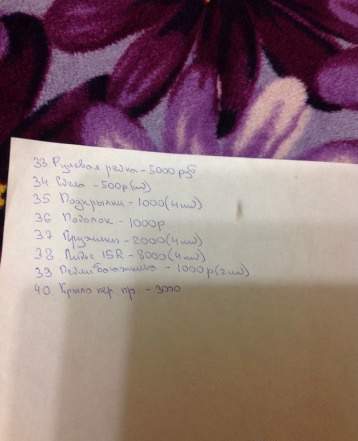 33. Рулевая рейка - 5000 руб
34 - 500р(
35 Подкрылки - 1000(4шт)
36 Потолок - 1000р
37 Пружины - 2000(4шт)
38 Литьё 15R - 8000(4шт)
39 - 1000р(2шт)
40. Крыло пер. пр. - 3000